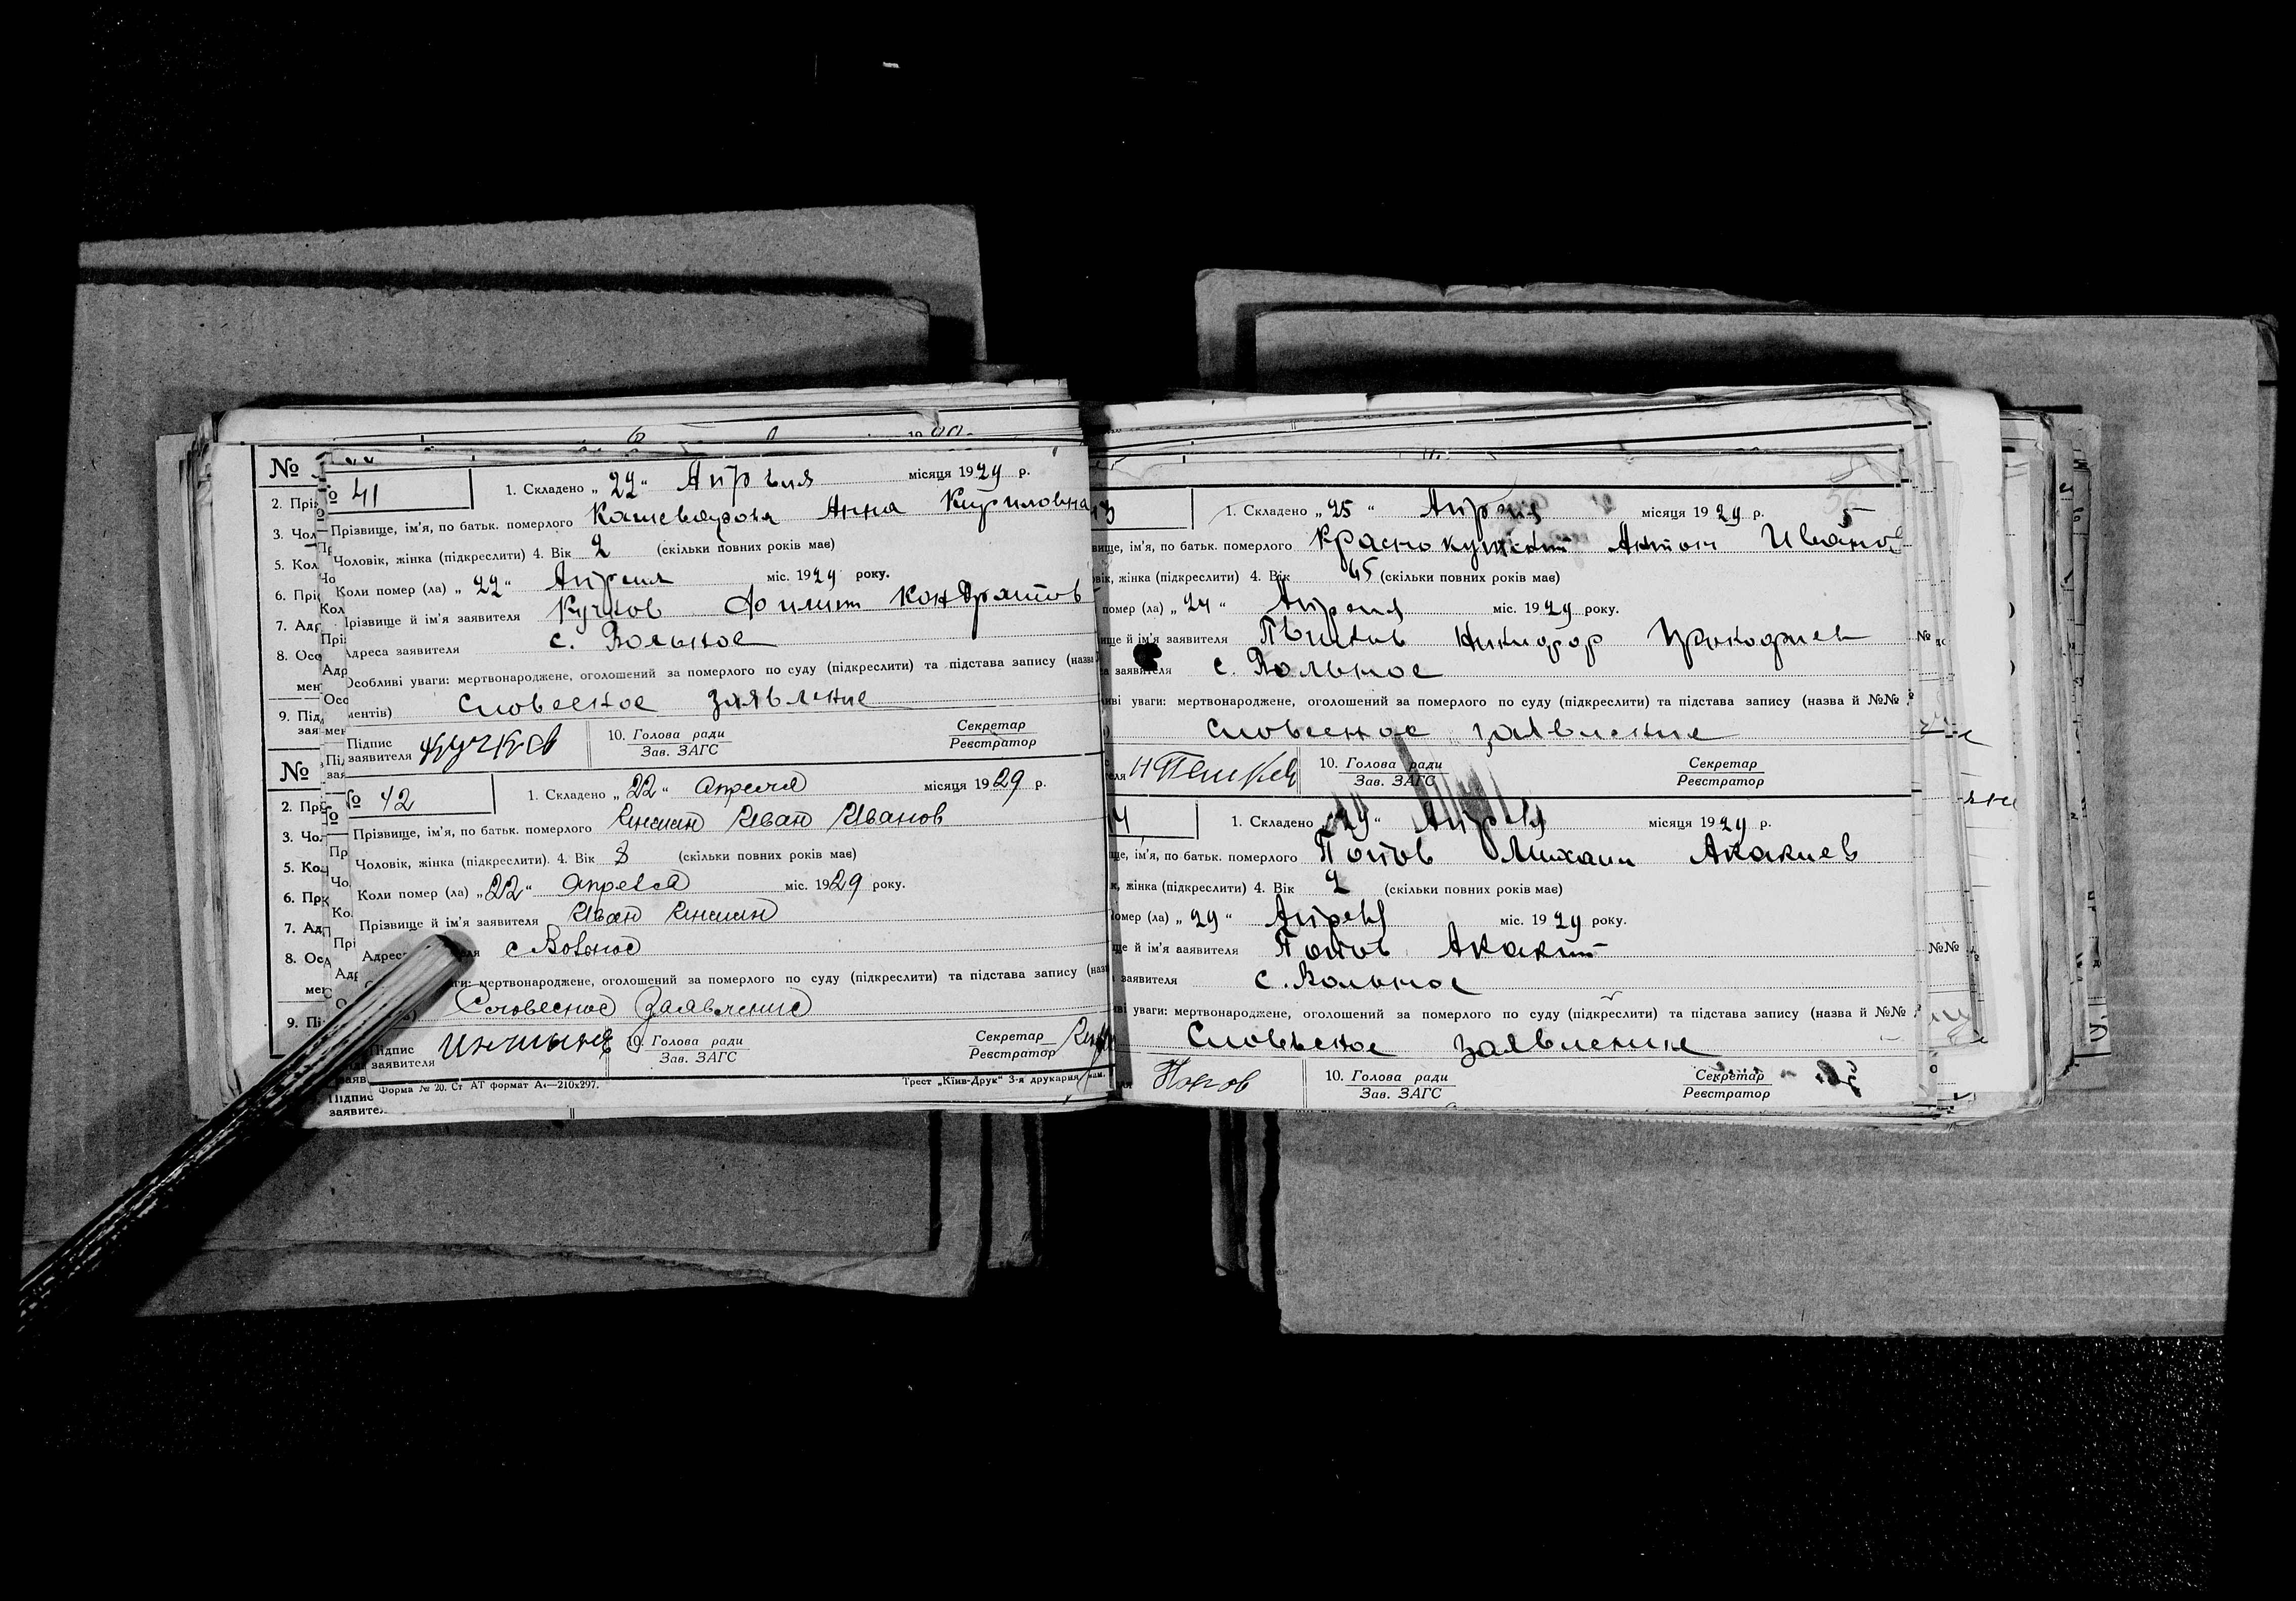 № 41
1. Складено „22“ Апреля місяця 1929 р.
Прізвище, ім'я, по батьк. померлого Кашеварова Анна Кириловна
Чоловік, жінка (підкреслити) 4. Вік 2 (скільки повних років має)
Коли помер (ла) „22“ Апреля міс. 1929 року.
Прізвище й ім'я заявителя Кучков Филип Кондратов
Адреса заявителя с. Вольное
Особливі уваги: мертвонароджене, оголошений за померлого по суду (підкреслити) та підстава запису (назва
ментів) Словесное заявление
Підпис заявителя Кучков
10. Голова ради
Зав. ЗАГС
Секретар
Реєстратор
№ 42
1. Складено „22“ Апреля місяця 1929 р.
Прізвище, ім'я, по батьк. померлого Иван Иванов
Чоловік, жінка (підкреслити). 4. Вік 8 (скільки повних років має)
Коли помер (ла) „22“ Апреля міс. 1929 року.
Прізвище й ім'я заявителя Иван
Адрес с Вольное
мертвонароджене, оголошений за померлого по суду (підкреслити) та підстава запису (назв
Словесное Заявление
Підпис
заявителя
10. Голова ради
Зав. ЗАГС
Секретар
Реєстратор
Форма № 20. Ст АТ формат А4—210x297.
Трест „Київ-Друк“ 3-я друкарня
1. Складено „25“ Апреля місяця 1929 р.
ім'я, по батьк. померлого Краснокутский Антон Иванов
жінка (підкреслити) 4. Вік 45 (скільки повних років має)
помер (ла) „24“ Апреля міс. 1929 року.
й ім'я заявителя Пешков Никифор
заявителя с. Вольное
уваги: мертвонароджене, оголошений за померлого по суду (підкреслити) та підстава запису (назва й №№
Словесное заявление
Н Пешков
10. Голова ради
Зав. ЗАГС
Секретар
Реєстратор
1. Складено „29“ Апреля місяця 1929 р.
ім'я, по батьк. померлого Попов Михаил Акакиев
жінка (підкреслити) 4. Вік 2 (скільки повних років має)
помер (ла) „29“ Апреля міс. 1929 року.
й ім'я заявителя Попов Акакий
заявителя с. Вольное
уваги: мертвонароджене, оголошений за померлого по суду (підкреслити) та підстава запису (назва й №№
Словесное заявление
Попов
10. Голова ради
Зав. ЗАГС
Секретар
Реєстратор